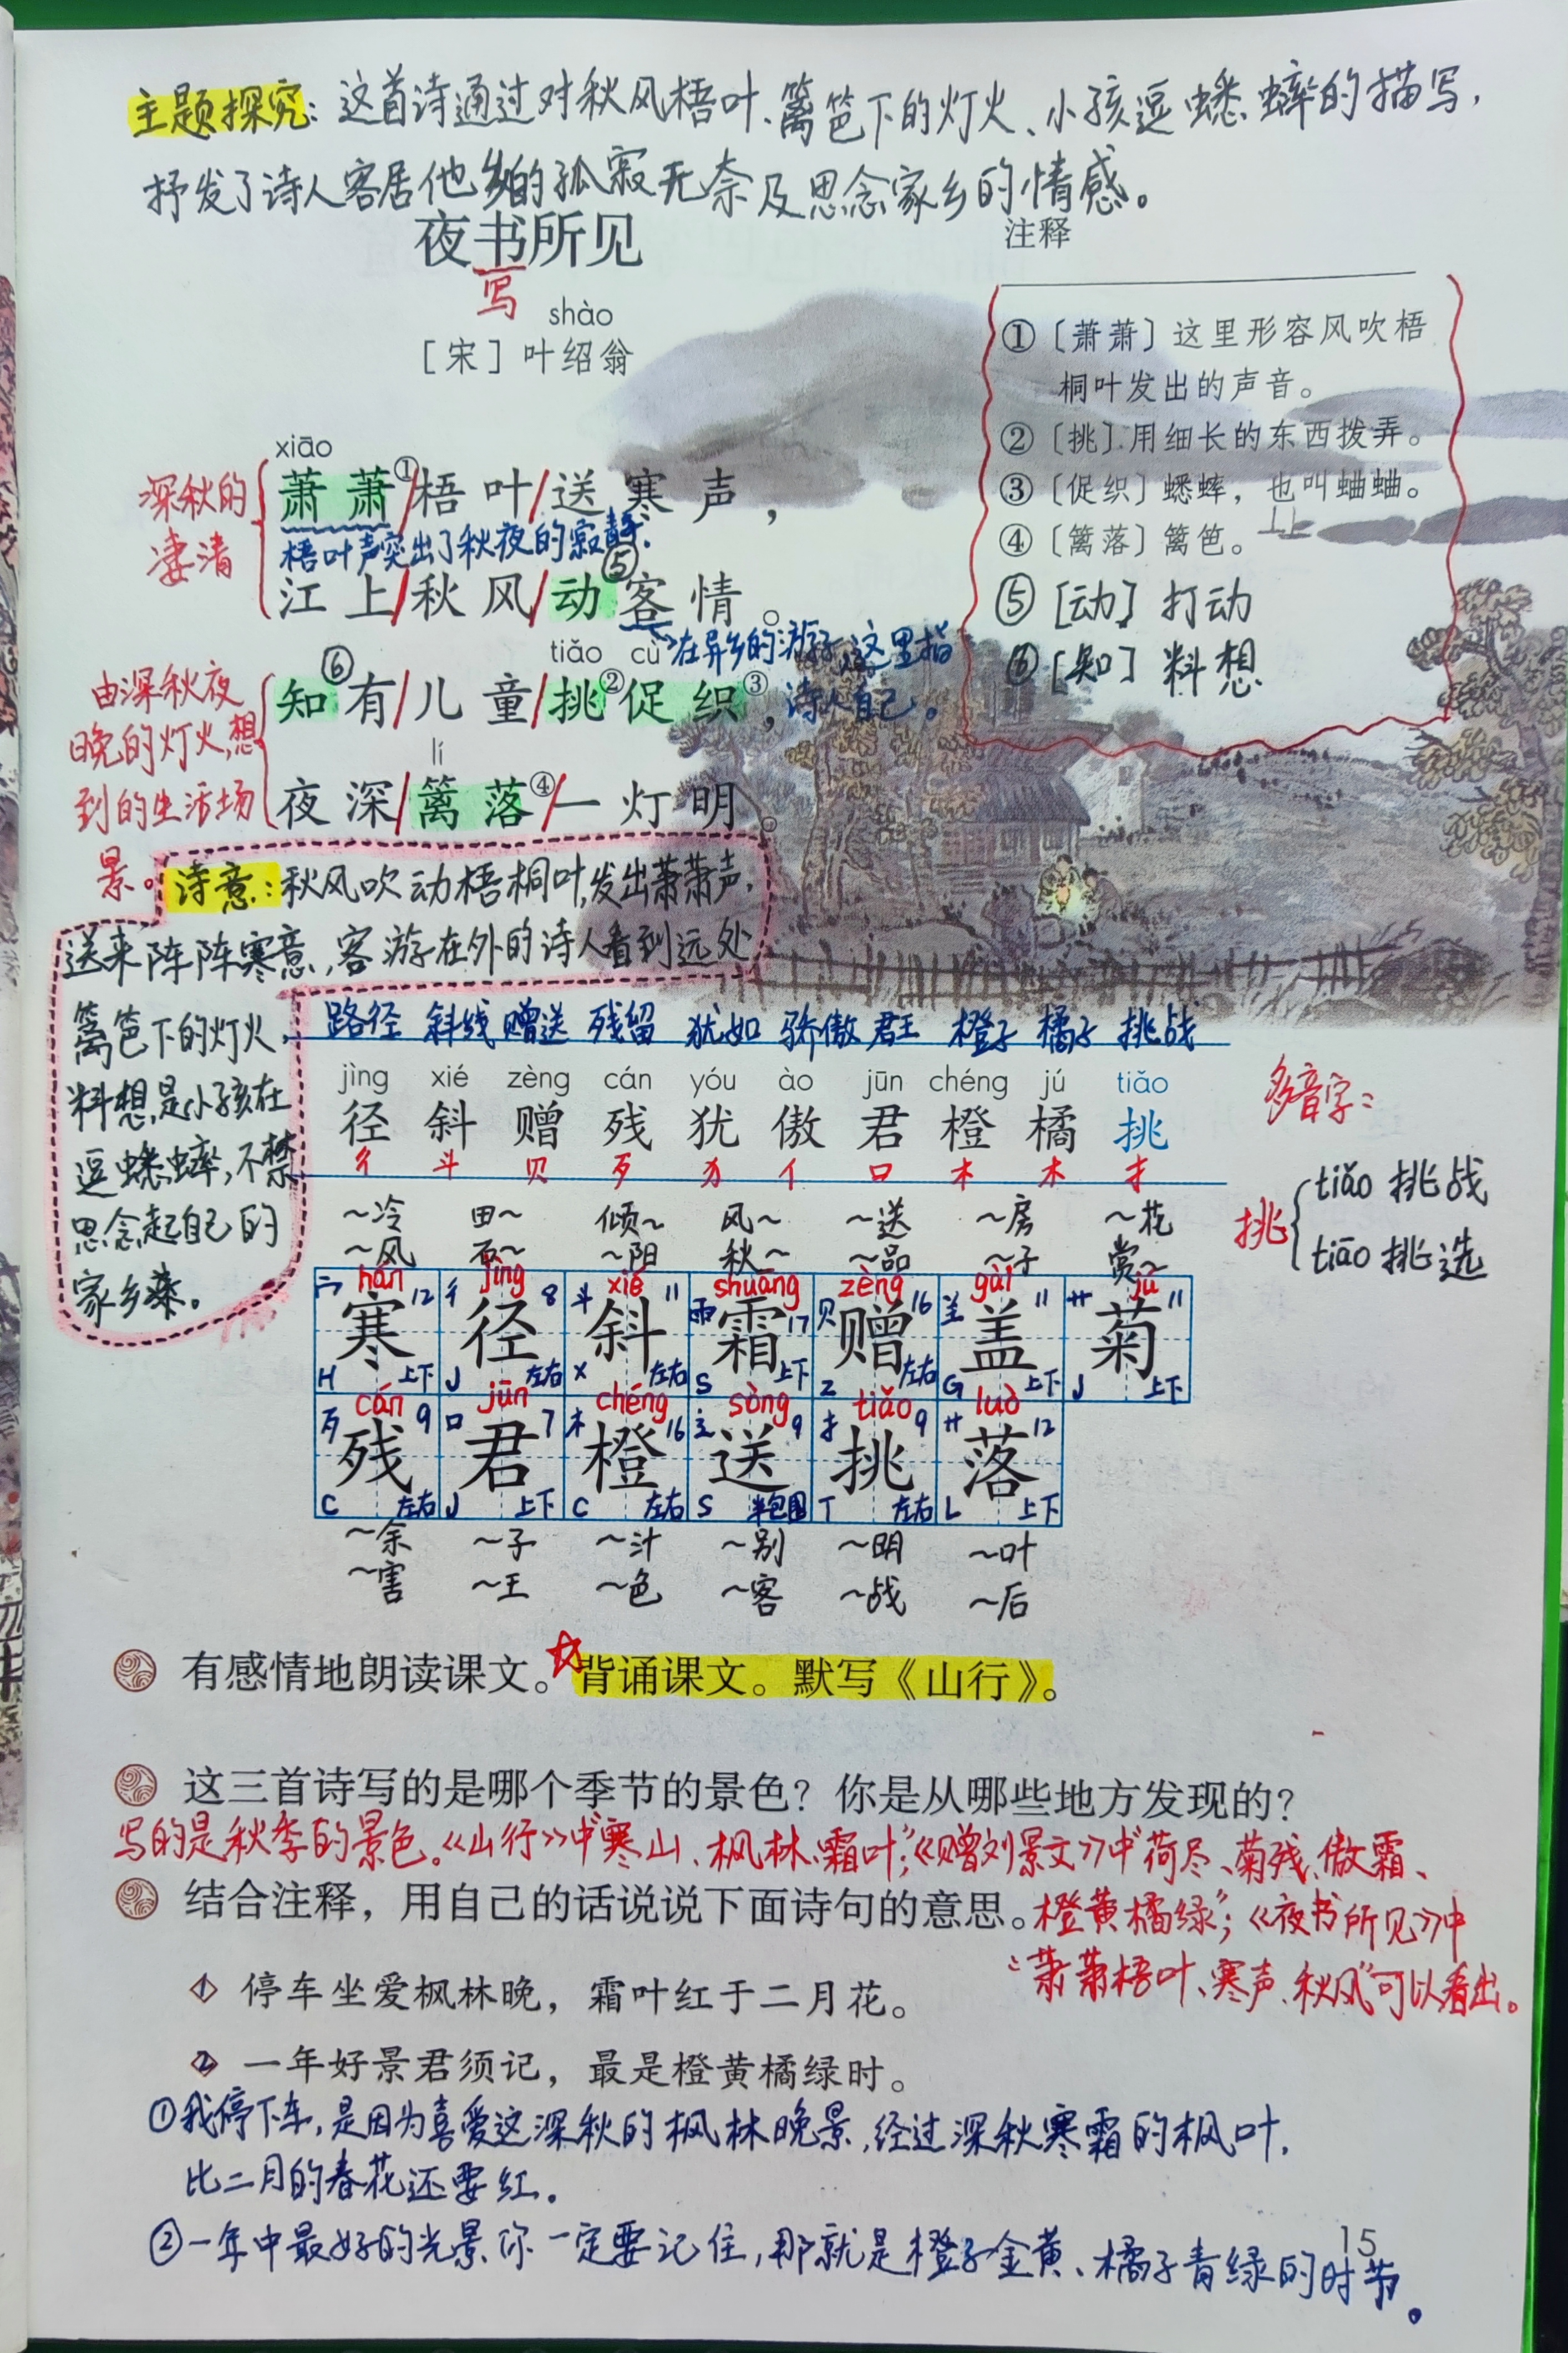 主题探究：这首诗通过对秋风梧叶、篱笆下的灯火、小孩逗蟋蟀的描写，
抒发了诗人客居他乡的孤寂无奈及思念家乡的情感。
夜书所见
写
shào
［宋］叶绍翁
注释
①〔萧萧〕这里形容风吹梧
桐叶发出的声音。
②〔挑〕用细长的东西拨弄。
③〔促织〕蟋蟀，也叫蛐蛐。
④〔篱落〕篱笆。
⑤[动] 打动
⑥[知] 料想
深秋的
凄清
xiāo
萧萧①/梧叶/送寒声，
梧叶声突出了秋夜的寂静.
⑤
江上/秋风/动客情。
在异乡的游子,这里指
诗人自己。
由深秋夜
晚的灯火,想
到的生活场
景。
⑥ tiǎo cù
知有/儿童/挑②促织③，
lí
夜深/篱落④/一灯明。
诗意：秋风吹动梧桐叶,发出萧萧声,
送来阵阵寒意,客游在外的诗人看到远处
篱笆下的灯火,
料想是小孩在
逗蟋蟀,不禁
思念起自己的
家乡来。
路径 斜线 赠送 残留 犹如 骄傲 君王 橙子 橘子 挑战
jìng xié zèng cán yóu ào jūn chéng jú tiǎo
径 斜 赠 残 犹 傲 君 橙 橘 挑
彳 斗 贝 歹 犭 亻 口 木 木 扌
多音字：
挑
tiǎo 挑战
tiāo 挑选
～冷 田～ 倾～ 风～ ～送 ～房 ～花
～风 石～ ～阳 秋～ ～品 ～子 赏～
hán jìng xié shuāng zèng gài jú
宀 12 彳 8 斗 11 雨 17 贝 16 羊 11 艹 11
寒 径 斜 霜 赠 盖 菊
H 上下 J 左右 X 左右 S 上下 Z 左右 G 上下 J 上下
cán jūn chéng sòng tiǎo luò
歹 9 口 7 木 16 辶 9 扌 9 艹 12
残 君 橙 送 挑 落
C 左右 J 上下 C 左右 S 半包围 T 左右 L 上下
～余 ～子 ～汁 ～别 ～明 ～叶
～害 ～王 ～色 ～客 ～战 ～后
有感情地朗读课文。背诵课文。默写《山行》。
这三首诗写的是哪个季节的景色？你是从哪些地方发现的？
写的是秋季的景色。《山行》中“寒山、枫林、霜叶”；《赠刘景文》中“荷尽、菊残、傲霜、
橙黄橘绿”；《夜书所见》中
“萧萧梧叶、寒声、秋风”可以看出。
结合注释，用自己的话说说下面诗句的意思。
1 停车坐爱枫林晚，霜叶红于二月花。
2 一年好景君须记，最是橙黄橘绿时。
①我停下车,是因为喜爱这深秋的枫林晚景,经过深秋寒霜的枫叶,
比二月的春花还要红。
②一年中最好的光景你一定要记住,那就是橙子金黄、橘子青绿的时节。
15